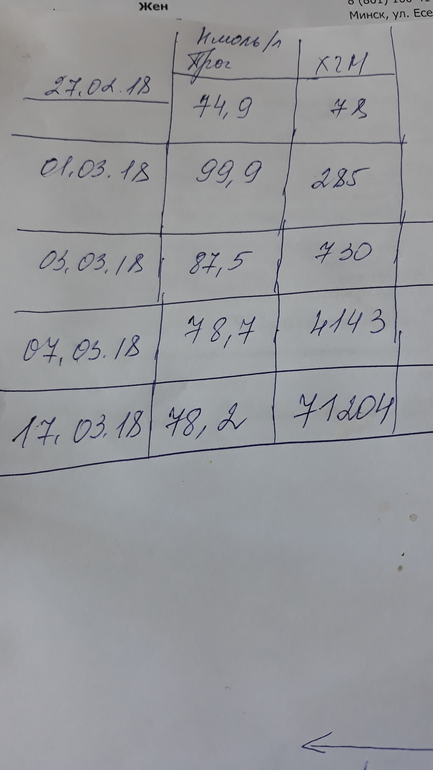 Жен
Минск, ул. Есе
нмоль/л
Прог ХГЧ
27.02.18 74,9 78
01.03.18 99,9 285
03.03.18 87,5 730
07.03.18 78,7 4143
17.03.18 78,2 71204